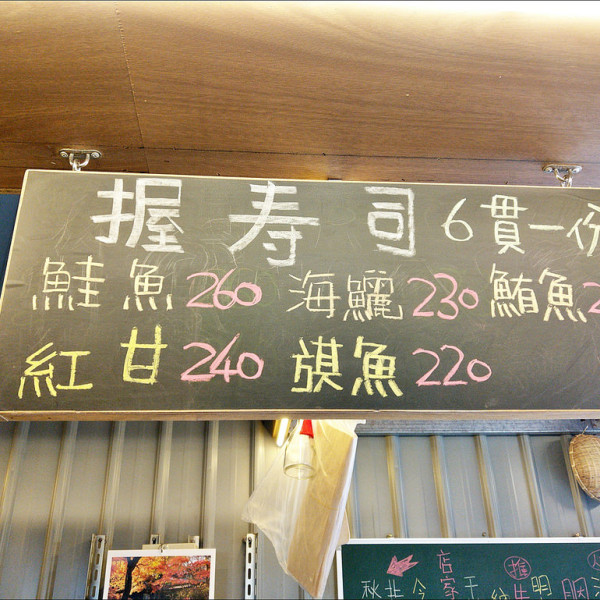 握寿司 6貫一份
鮭魚260 海鱺230 鮪魚2
紅甘240 旗魚220
店家
秋 北 今